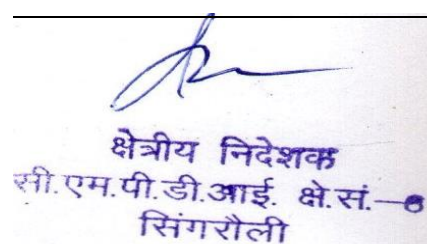 क्षेत्रीय निदेशक
सी.एम.पी.डी.आई. क्षे.सं.-6
सिंगरौली